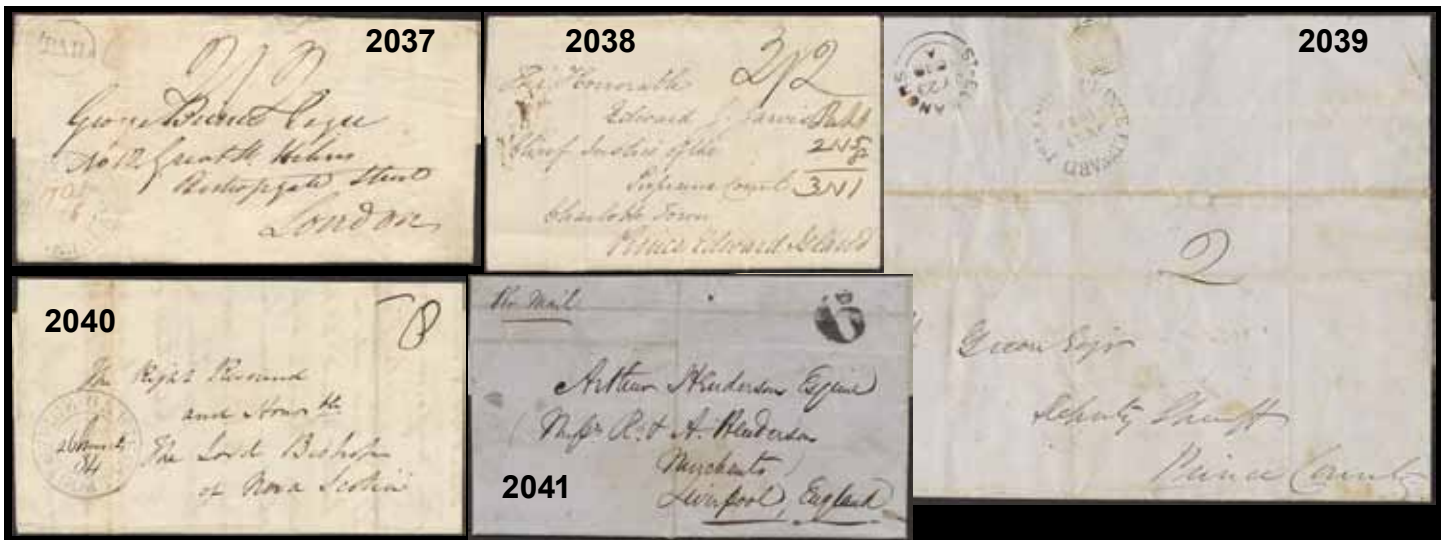 2037
PAID
2/2
George Esqre
No 12, Great St Helens
Bishopgate Street
London
2038
2/2
The Honorable
Edward J. Jarvis
Chief Justice of the
Supreme Court
Charlotte Town
Prince Edward Island
2039
2
Green Esqr
Deputy Sheriff
Prince County
2040
8
The Right Reverend
and Honorble
The Lord Bishop
of Nova Scotia
2041
Per Mail
6
Arthur Henderson Esquire
R. & A. Henderson
Merchants
Liverpool, England